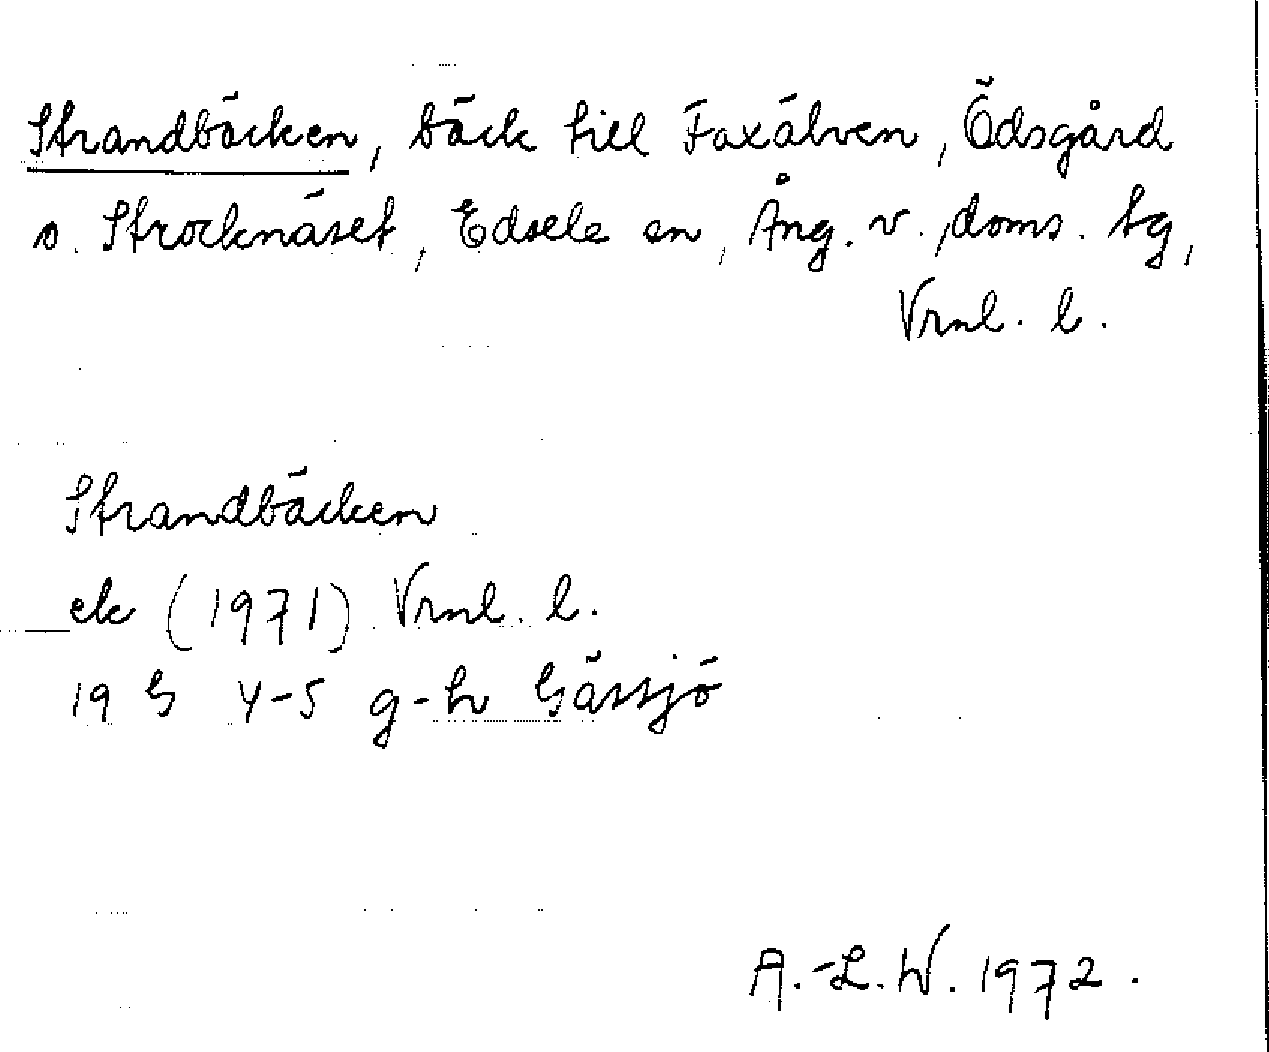 Strandbäcken, bäck till Faxälven, Ödsgård
o. Strocknäset, Edsele sn, Ång. v. doms. tg,
Vrnl. l.
Strandbäcken
ek (1971) Vrnl. l.
19 G 4-5 g-h Gåssjö
A.-L. W. 1972.